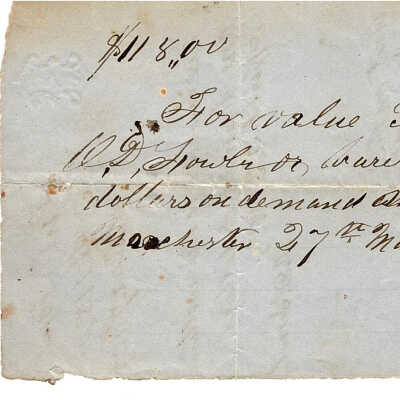 $118,00
For value
O.D. Fowler or, bare
dollars on demand
Manchester 27th Ma